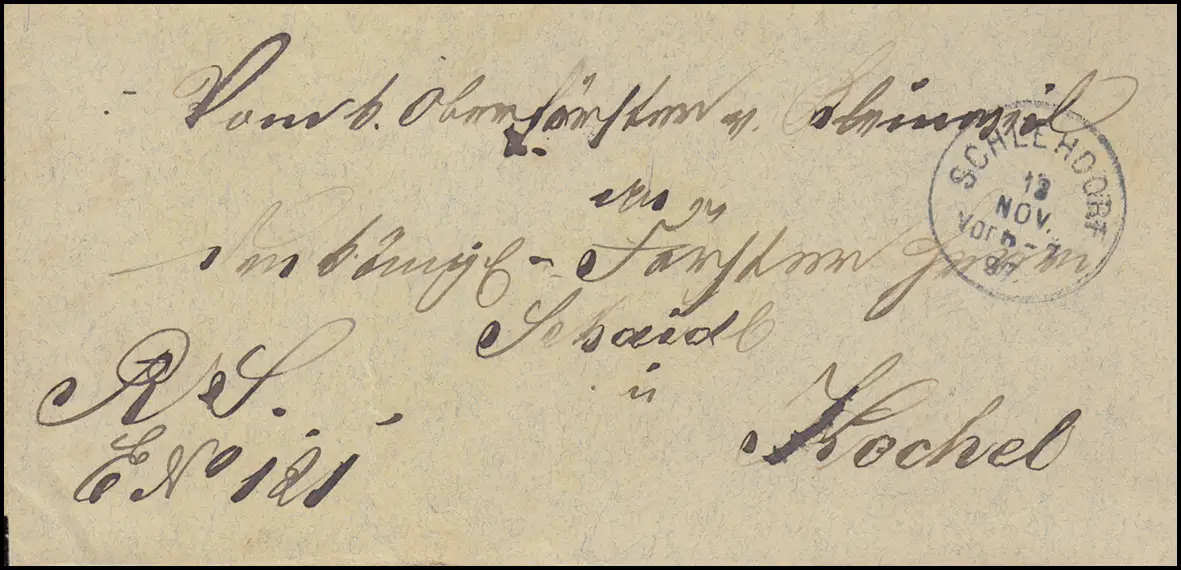 Vom k. Oberförster v. Kleinweil
An
den königl. Förster Herrn
Schaidl
in
Kochel
R. S.
E No 121
SCHLEHDORF
NOV.
Vor